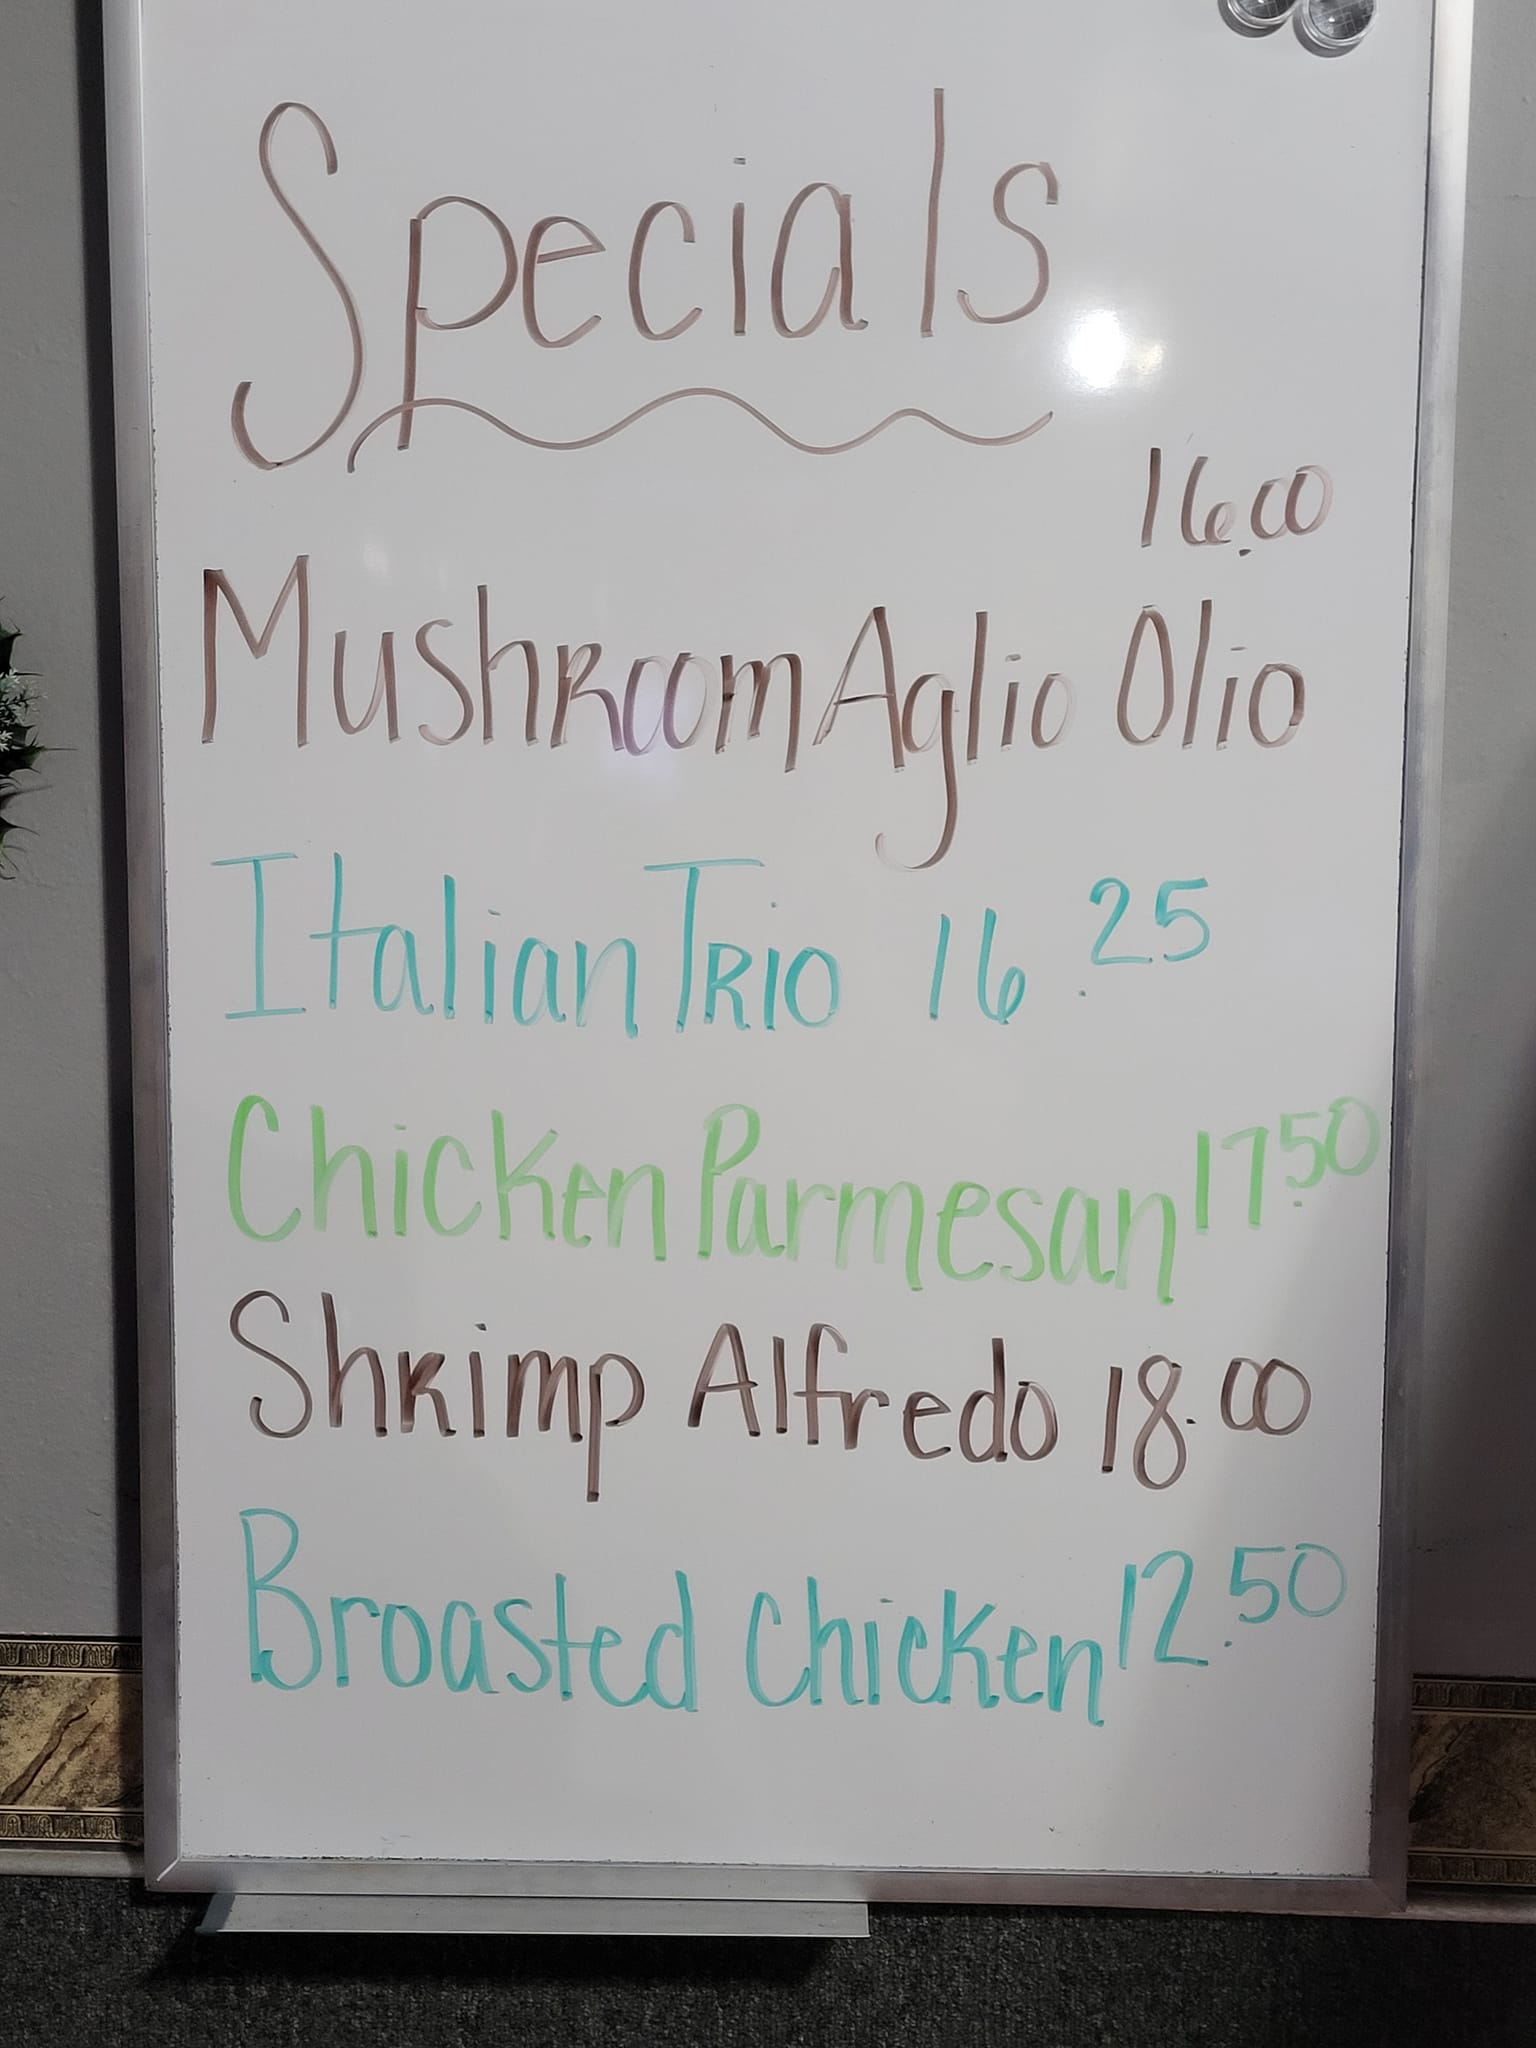 Specials
16.00
Mushroom Aglio Olio
Italian Trio 16.25
Chicken Parmesan 17.50
Shrimp Alfredo 18.00
Broasted Chicken 12.50